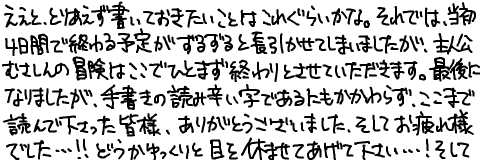 ええと、とりあえず書いておきたいことはこれぐらいかな。それでは、当初
4日間で終わる予定がずるずると長引かせてしまいましたが、主人公
むさしんの冒険はここでひとまず終わりとさせていただきます。最後に
なりましたが、手書きの読み辛い字であるにもかかわらず、ここまで
読んで下さった皆様、ありがとうございました。そしてお疲れ様
でした…!!どうかゆっくりと目を休ませてあげて下さい…!そして